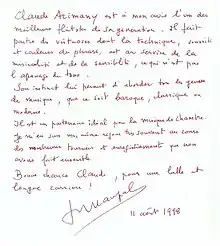 Claude Arimany est à mon avis l'un des
meilleurs flûtistes de sa génération. Il fait
partie des virtuoses dont la technique, sonorité
et couleurs du phrasé, est au service de la
musicalité et de la sensibilité, ce qui n'est pas
l'apanage de tous.
Son instinct lui permet d'aborder tous les genres
de musique, que ce soit baroque, classique ou
moderne.
Il est un partenaire idéal pour la musique de chambre.
Je m'en suis moi-même rendu très souvent au cours
des nombreuses tournées et enregistrements que nous
avons fait ensemble.
Bonne chance Claude, pour une belle et
longue carrière !
11 août 1998